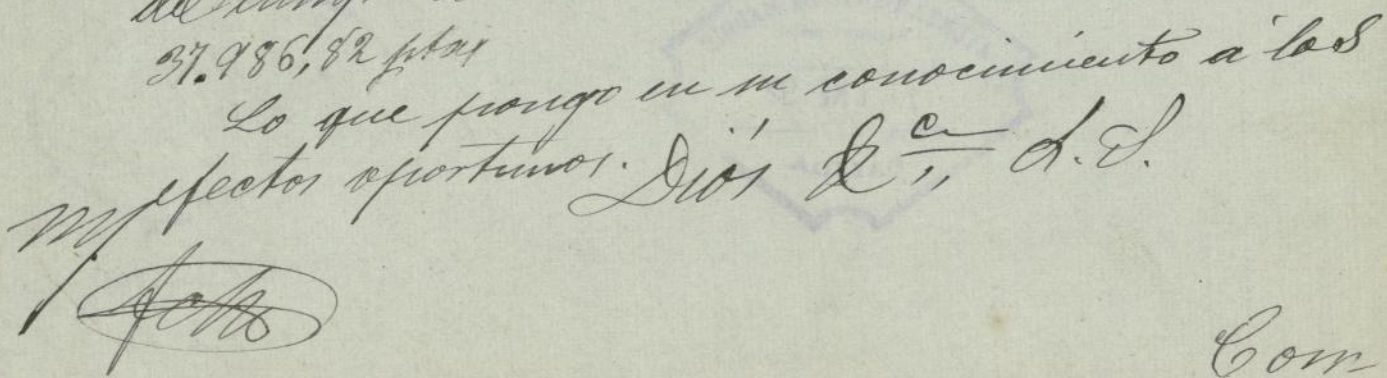 37.986,82 ptas
Lo que pongo en su conocimiento á los
efectos oportunos. Diós &ª,, L.S.
Com